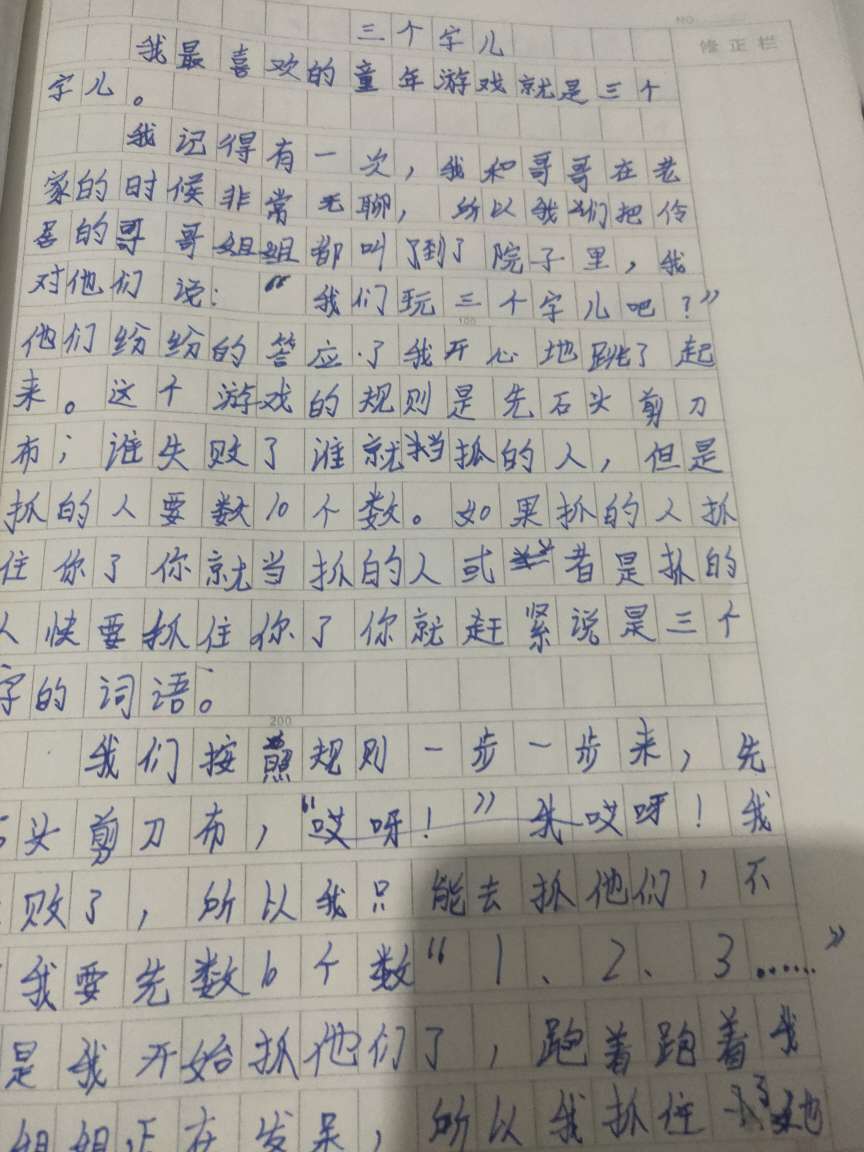 NO
修正栏
三个字儿
我最喜欢的童年游戏就是三个
字儿。
我记得有一次，我和哥哥在老
家的时候非常无聊，所以我们把伶
的哥哥姐姐都叫了到了院子里，我
对他们说：“我们玩三个字儿吧？”
他们纷纷的答应了我开心地跳了起
100
来。这个游戏的规则是先石头剪刀
布；谁失败了谁就挡抓的人，但是
抓的人要数10个数。如果抓的人抓
住你了你就当抓的人或者是抓的
人快要抓住你了你就赶紧说是三个
字的词语。
200
我们按照规则一步一步来，先
头剪刀布，“哎呀！”我哎呀！我
败了，所以我只能去抓他们，不
我要先数10个数“1、2、3……”
是我开始抓他们了，跑着跑着我
姐姐正在发呆，所以我抓住了她